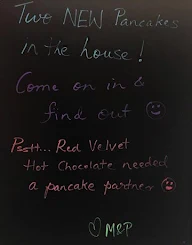 Two NEW Pancakes
in the house!
Come on in &
find out
Psstt... Red Velvet
Hot Chocolate needed
a pancake partner
M&P